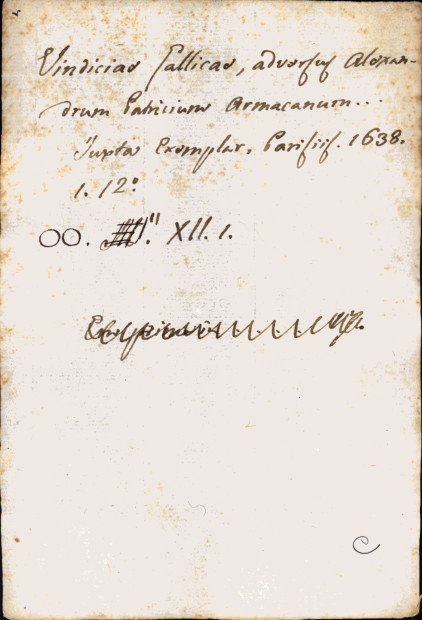 Vindiciae Gallicae, adversus Alexan-
drum Patricium Armacanum...
Juxta Exemplar. Parisiis. 1638.
1. 12º
OO. XII. 1.